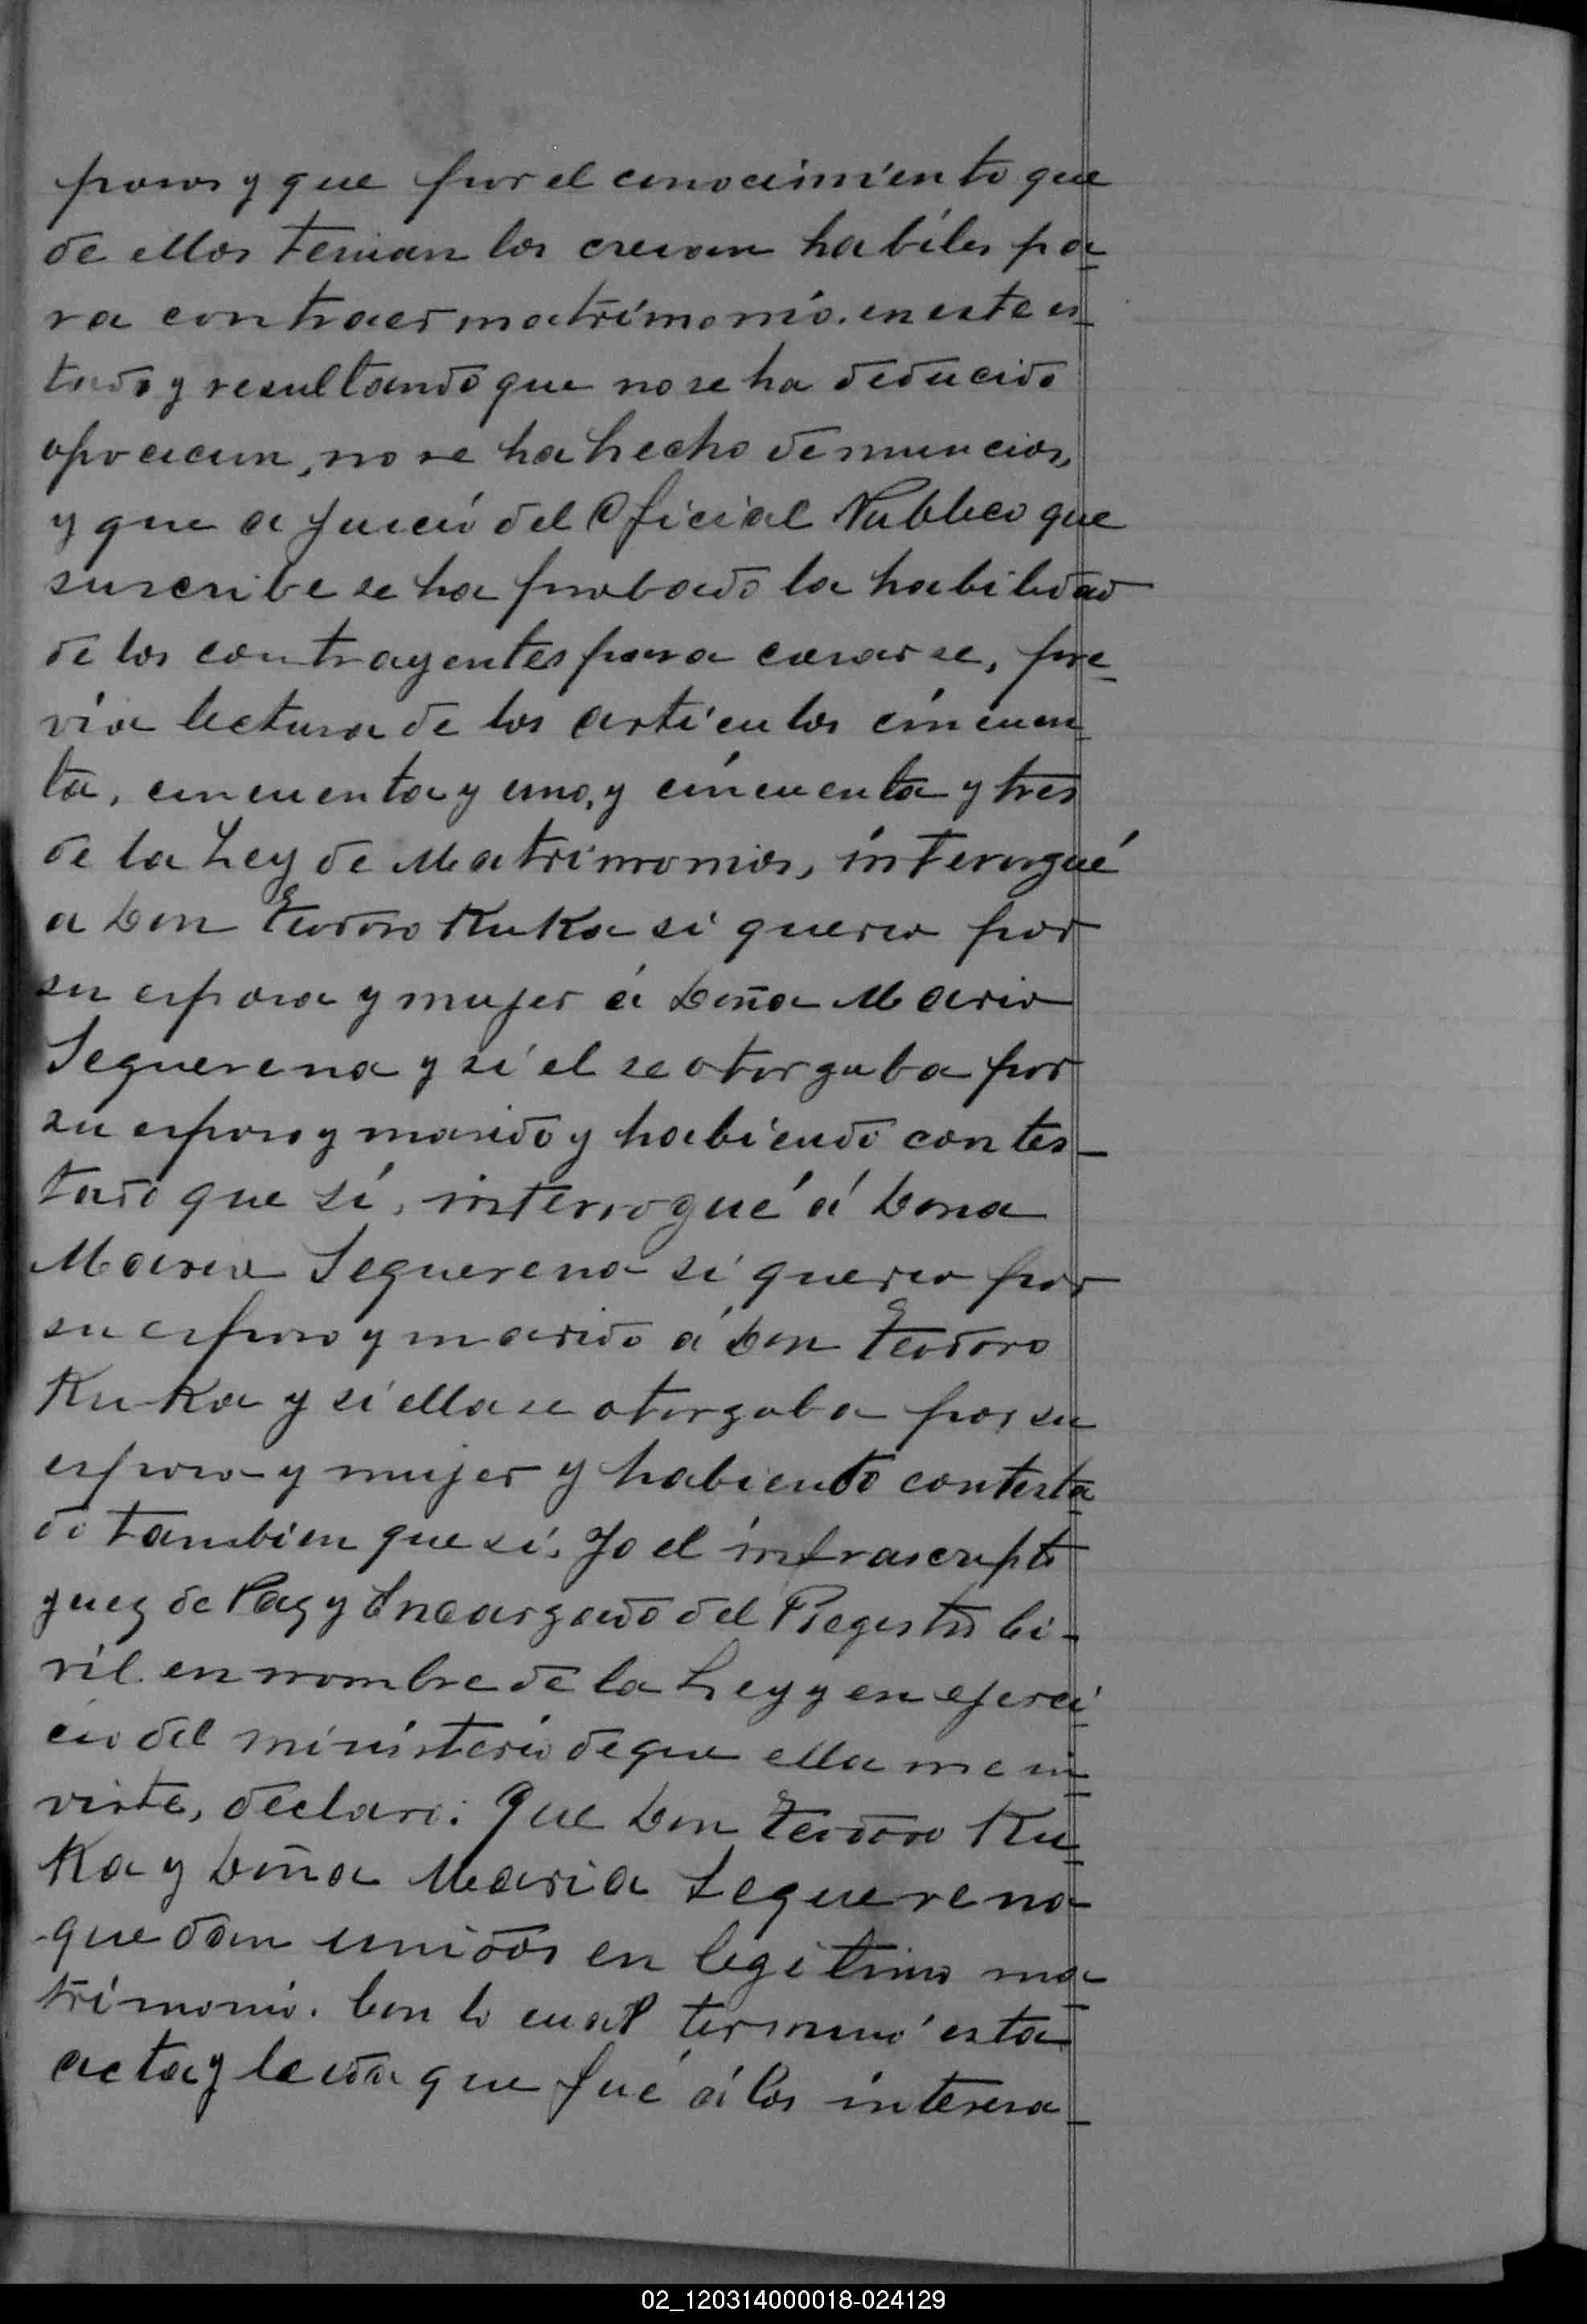 posos y que por el conocimiento que
de ellos tenian los creian habiles pa-
ra contraer matrimonio. en este es-
tado y resultando que no se ha deducido
oposicion, no se ha hecho denuncias,
y que a juicio del Oficial Publico que
suscribe se ha probado la habilidad
de los contrayentes para casarse, pre-
via lectura de los articulos cincuen-
ta, cincuenta y uno, y cincuenta y tres
de la Ley de Matrimonios, interrogué
a Don Teodoro Kuka si queria por
su esposa y mujer á Doña Maria
Sequerena y si el se otorgaba por
su esposo y marido y habiendo contes-
tado que sí, interrogué á Dona
Maria Sequerena si queria por
su esposo y marido á Don Teodoro
Kuka y si ella se otorgaba por su
esposa y mujer y habiendo contesta-
do tambien que si. Yo el infrascripto
Juez de Paz y Encargado del Registro Ci-
vil en nombre de la Ley y en ejerci-
cio del ministerio de que ella me in-
viste, declaro: Que Don Teodoro Ku-
ka y Doña Maria Sequerena
quedan unidos en legitimo ma-
trimonio. Con lo cual terminó esta
acta y leida que fué á los interesa-
02_120314000018-024129